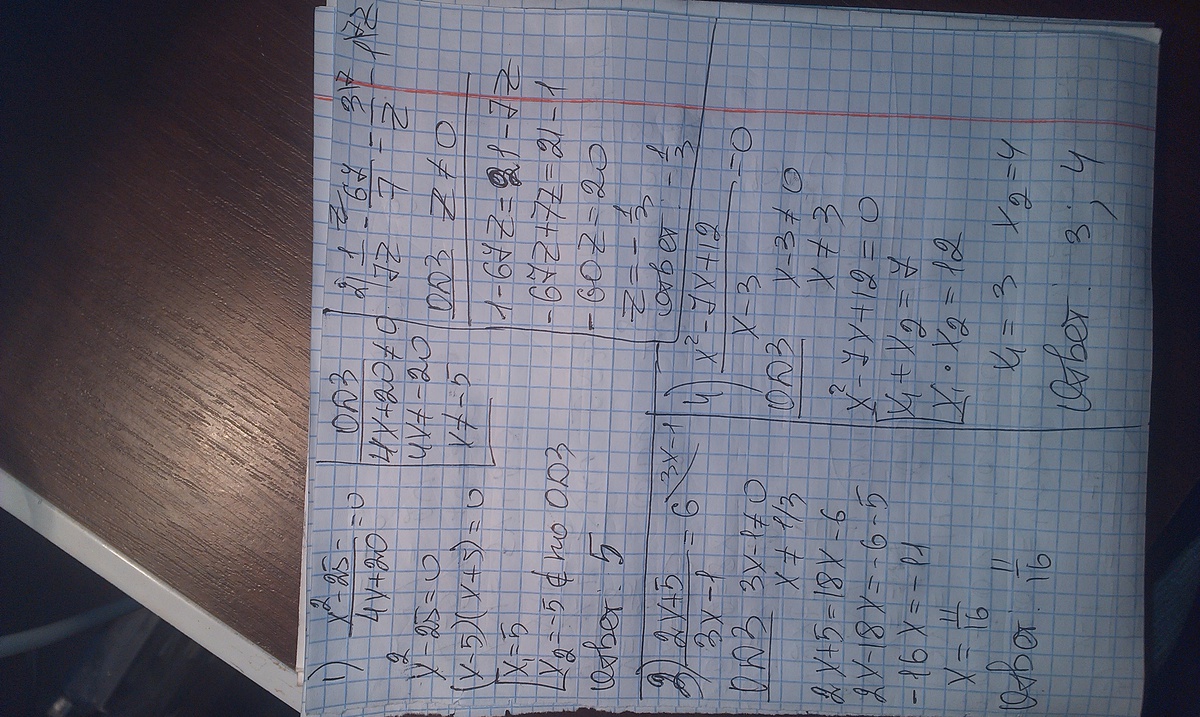 1) x²-25/4x+20=0
x²-25=0
(x-5)(x+5)=0
x₁=5
x₂=-5 ∉ по ОДЗ
Ответ: 5
ОДЗ
4x+20≠0
4x≠-20
x≠-5
ОДЗ z≠0
-67z+7z=21-1
-60z=20
z=-1/3
Ответ: -1/3
3) 2x+5/3x-1=6 3x-1
ОДЗ 3x-1≠0
x≠1/3
2x+5=18x-6
2x-18x=-6-5
-16x=-11
x=11/16
Ответ: 11/16
4) x²-7x+12/x-3=0
ОДЗ x-3≠0
x≠3
x²-7x+12=0
x₁+x₂=7
x₁·x₂=12
x₁=3 x₂=4
Ответ: 3; 4